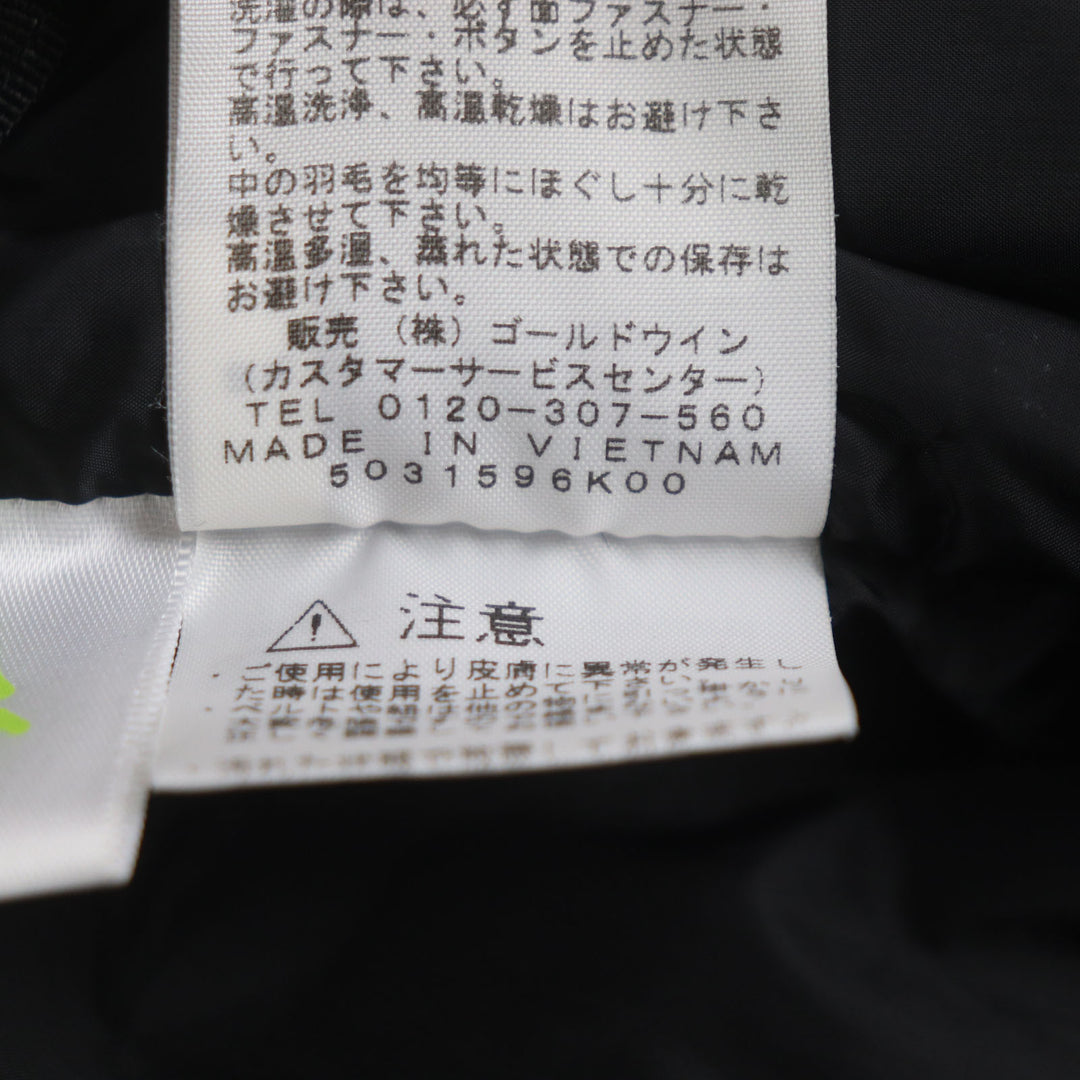 洗濯の際は、必ず面ファスナー・
ファスナー・ボタンを止めた状態
で行って下さい。
高温洗浄、高温乾燥はお避け下さ
い。
中の羽毛を均等にほぐし十分に乾
燥させて下さい。
高温多湿、蒸れた状態での保存は
お避け下さい。
販売 (株) ゴールドウイン
(カスタマーサービスセンター)
TEL 0120-307-560
MADE IN VIETNAM
5031596K00
注意
ご使用により皮膚に異常が発生し
た時は使用を止めて下さい。